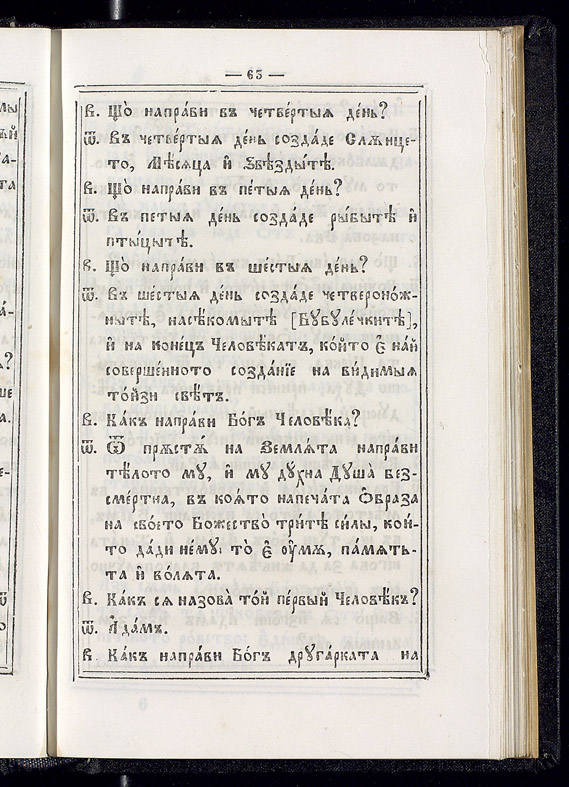 — 65 —
В. Що̀ напра́ви въ четве́ртыя де́нь?
Ѿ. Въ четве́ртыя де́нь созда́де Слѫ́нце-
то, Мѣ́сяца и҆ Ѕвѣ́здытѣ.
В. Що̀ напра́ви въ пе́тыя де́нь?
Ѿ. Въ пе́тыя де́нь созда́де ры́бытѣ и҆
пты́цытѣ.
В. Що̀ напра́ви въ ше́стыя де́нь?
Ѿ. Въ ше́стыя де́нь созда́де четвероно́ж-
нытѣ, насѣ́комытѣ [Бꙋбꙋле́чкитѣ],
и҆ на коне́цъ Человѣ́катъ, ко́йто Є҆ на́й
соверше́нното созда́нїе на ви́димыя
то́йзи свѣ́тъ.
В. Ка́къ напра́ви Бо́гъ Человѣ́ка?
Ѿ. Ѿ прѫ́стѫ на Землята напра́ви
тѣ́лото мꙋ, и҆ мꙋ дꙋ́хна Дꙋша̀ без-
сме́ртна, въ коя́то напеча́та О҆́браза
на сво́ето Божество̀ три́тѣ си́лы, кои́-
то да́ди не́мꙋ; то̀ Є҆ оу҆́мъ, па́мять-
та и҆ во́лята.
В. Ка́къ ся назова̀ то́й пе́рвый Человѣ́къ?
Ѿ. А҆да́мъ.
В. Ка́къ напра́ви Бо́гъ дрꙋга́рката на